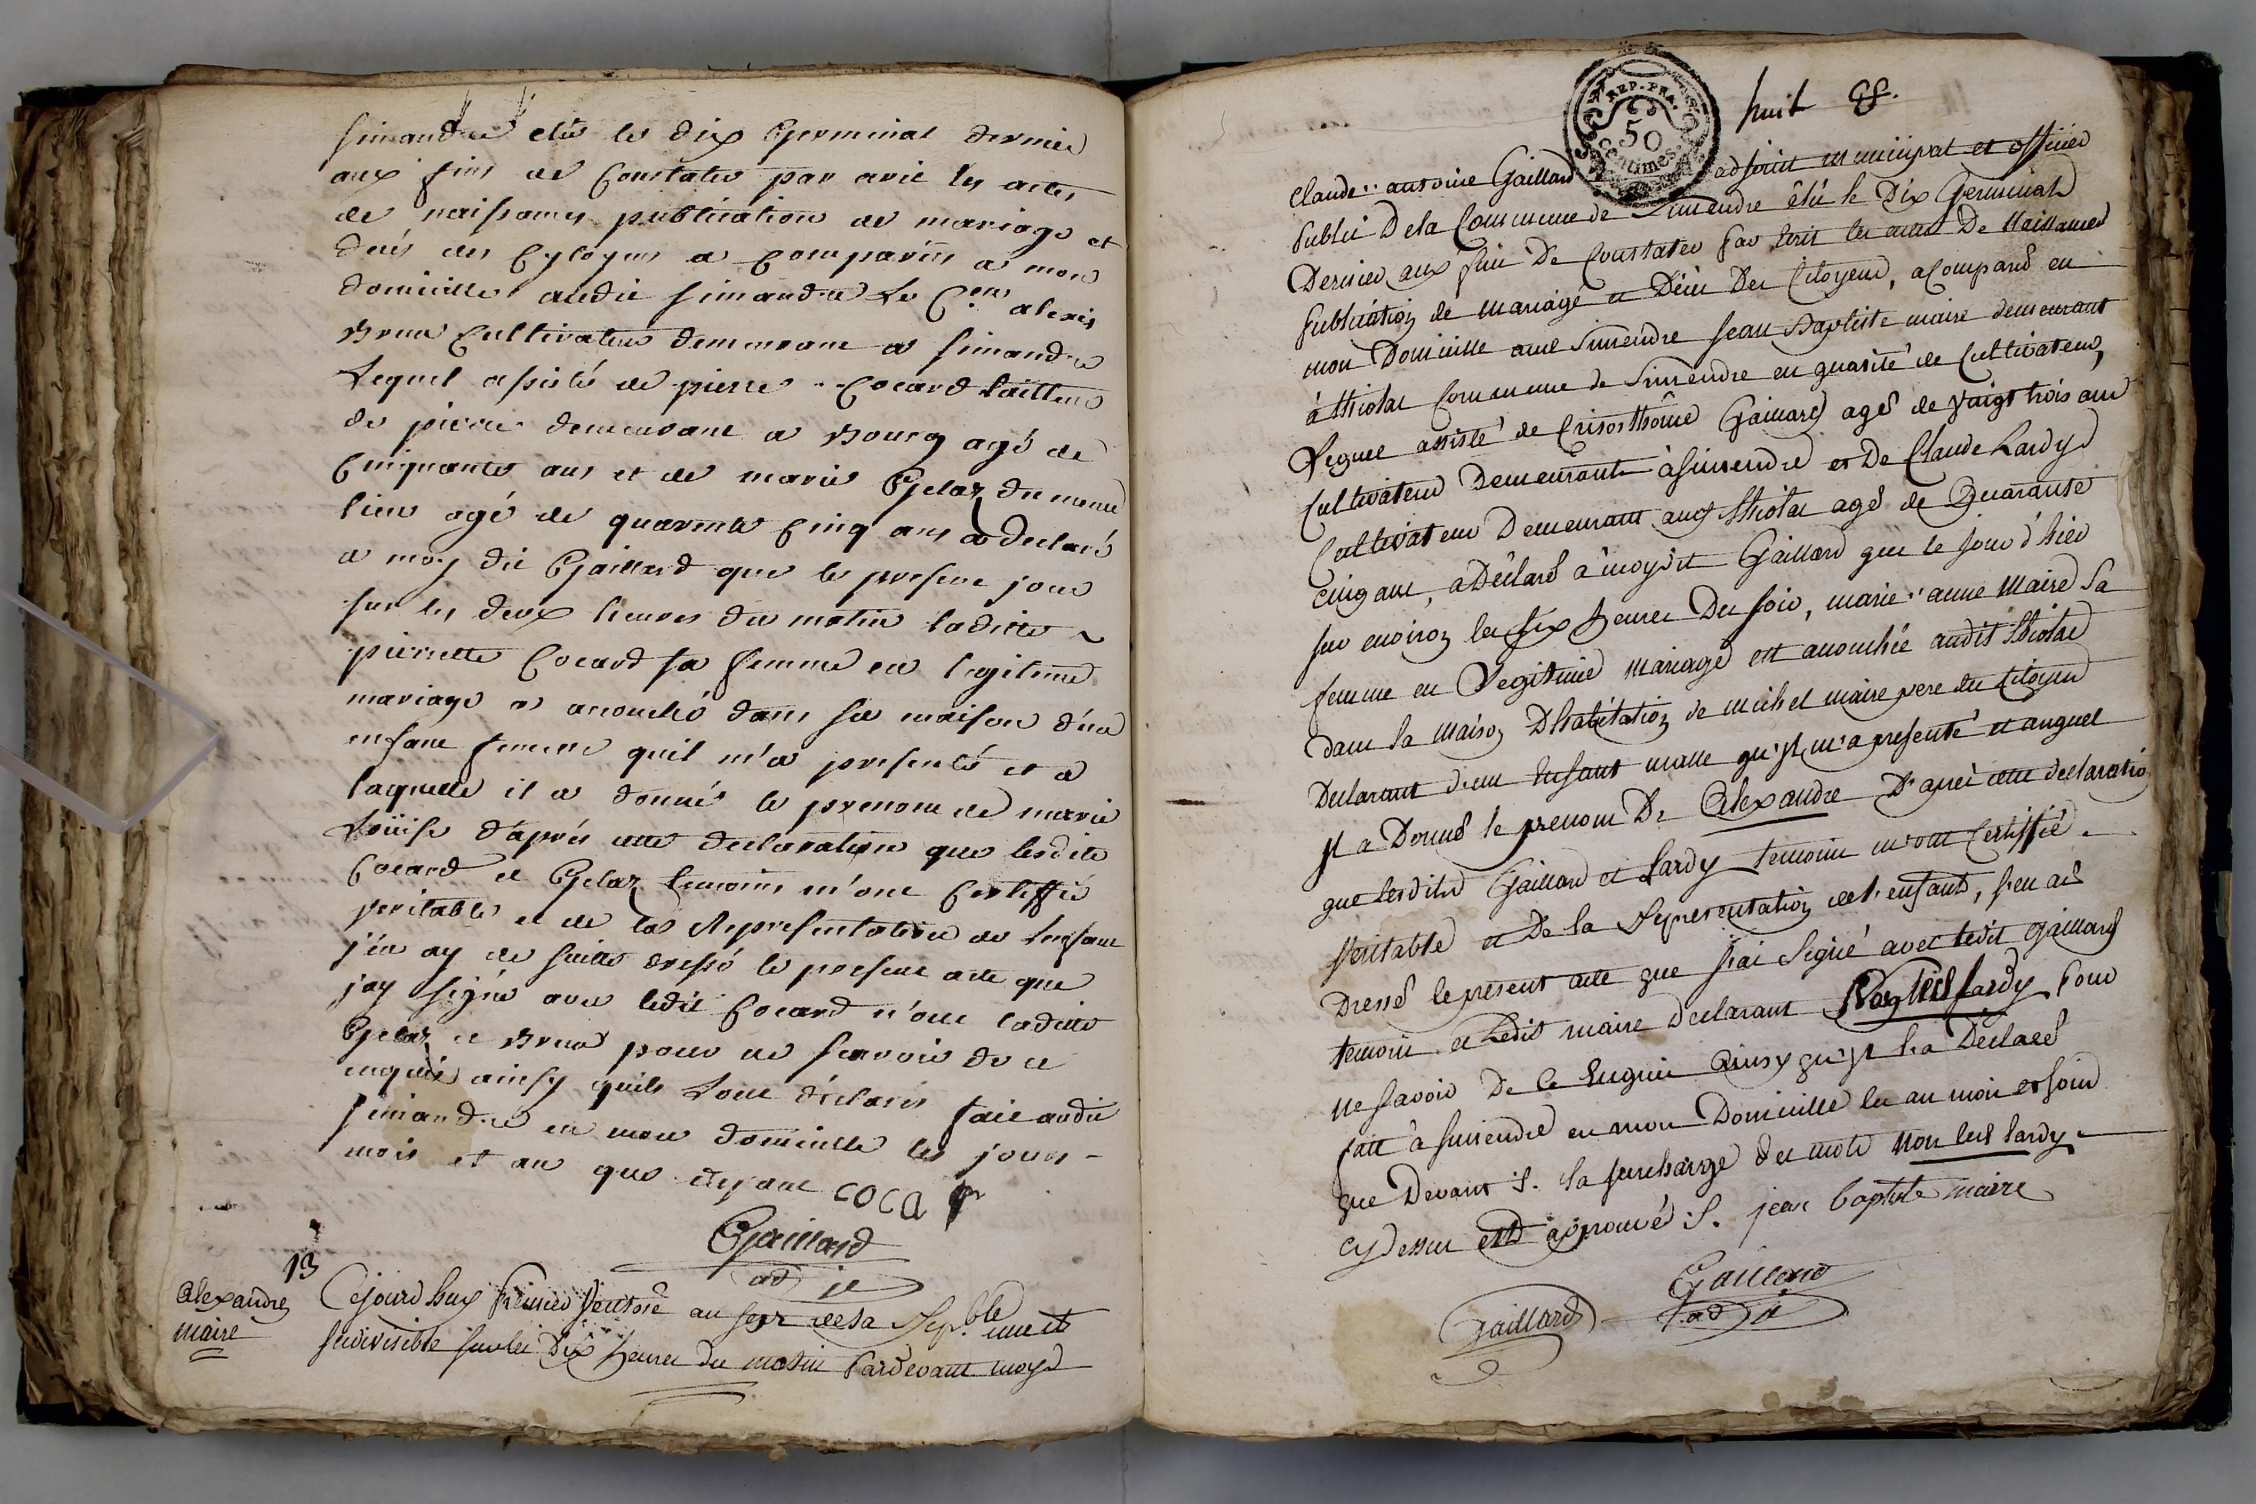 simandre elû le dix Germinal dernier
aux fins de Constater par ecrit les actes
de naissances publication de mariage et
deués des Cytoyens a Comparûs a mon
domicille audit simandre Le C.en alexis
Brun Cultivateur demeurant a simandre
Lequel assisté de pierre Cocard tailleur
de pierre demeurant a Bourg agé de
Cinquante ans et de marie Gelaz du meme
lieu agé de quarente Cinq ans a declaré
a moy dit Gaillard que le present jour
sur les deux heures du matin laditte
pierrette Cocard sa femme en legitime
mariage a accouché dans sa maison d'un
enfant femelle quil m'a presenté et a
laquelle il a donné le prenom de marie
Loüise d'après cette declaration que lesdits
Cocard et Gelaz temoins m'ont Certiffié
veritable et de la Representation de Lenfant
j'en ay de suitte dressé le present acte que
jay signé avec ledit Cocard n'ont laditte
Gelaz et Brun pour ne scavoir de ce
enquis ainsy quils Lont déclarés fait audit
simandre en mon domicille les jours
mois et an que deyant COCAR
Gaillard
adj
13
alexandre
maire
Cejourd'huy premier Ventose an sept de la Rep.ble une et
indivisible sur les Dix heures du matin Pardevant moy
huit
REP. FRA.
50
Centimes
Claude antoine Gaillard adjoint municipal et officier
Public De la Commune de Simendre élû le Dix Germinal
Dernier aux fins De Constater par Ecrit les actes De Naissances
Publication de Mariage et Décés Des Citoyens, a Comparû en
mon Domicille audit Simendre Jean Baptiste maire demeurant
à Thiolas Commune de Simendre en qualité de Cultivateur,
Lequel assisté de Crisosthôme Gaillard agé de Vaingt trois ans
Cultivateur Demeurant à Simendre et De Claude Lardy
Cultivateur Demeurant aux Thiolas agé de Quarante
Cinq ans, a Déclaré à moydit Gaillard que le jour d'hier
sur environ les six heures Du soir, marie anne Maire Sa
femme en Legitime Mariage est accouchée audit Thiolas
dans la Maison D'habitation de michel maire pere du Citoyen
Declarant d'un Enfant malle qu'jl m'a presenté et auquel
jl a Donné le prenom De Alexandre D'après cette declaration
que lesdits Gaillard et Lardy temoins m'ont Certiffié
Véritable et De la Representation de l'enfant, j'en ai
Dressé le present acte que j'ai Signé avec ledit Gaillard
temoin et Ledit maire Declarant Non ledit Lardy pour
ne Savoir De Ce Enquis Ainsy qu'jl l'a Déclaré
fait à Simendre en mon Domicille les an mois et jour
que Devant S. la surcharge des mots Non led Lardy
cy dessus est approuvé S. jean baptiste maire
Gaillard
Gaillard
adj